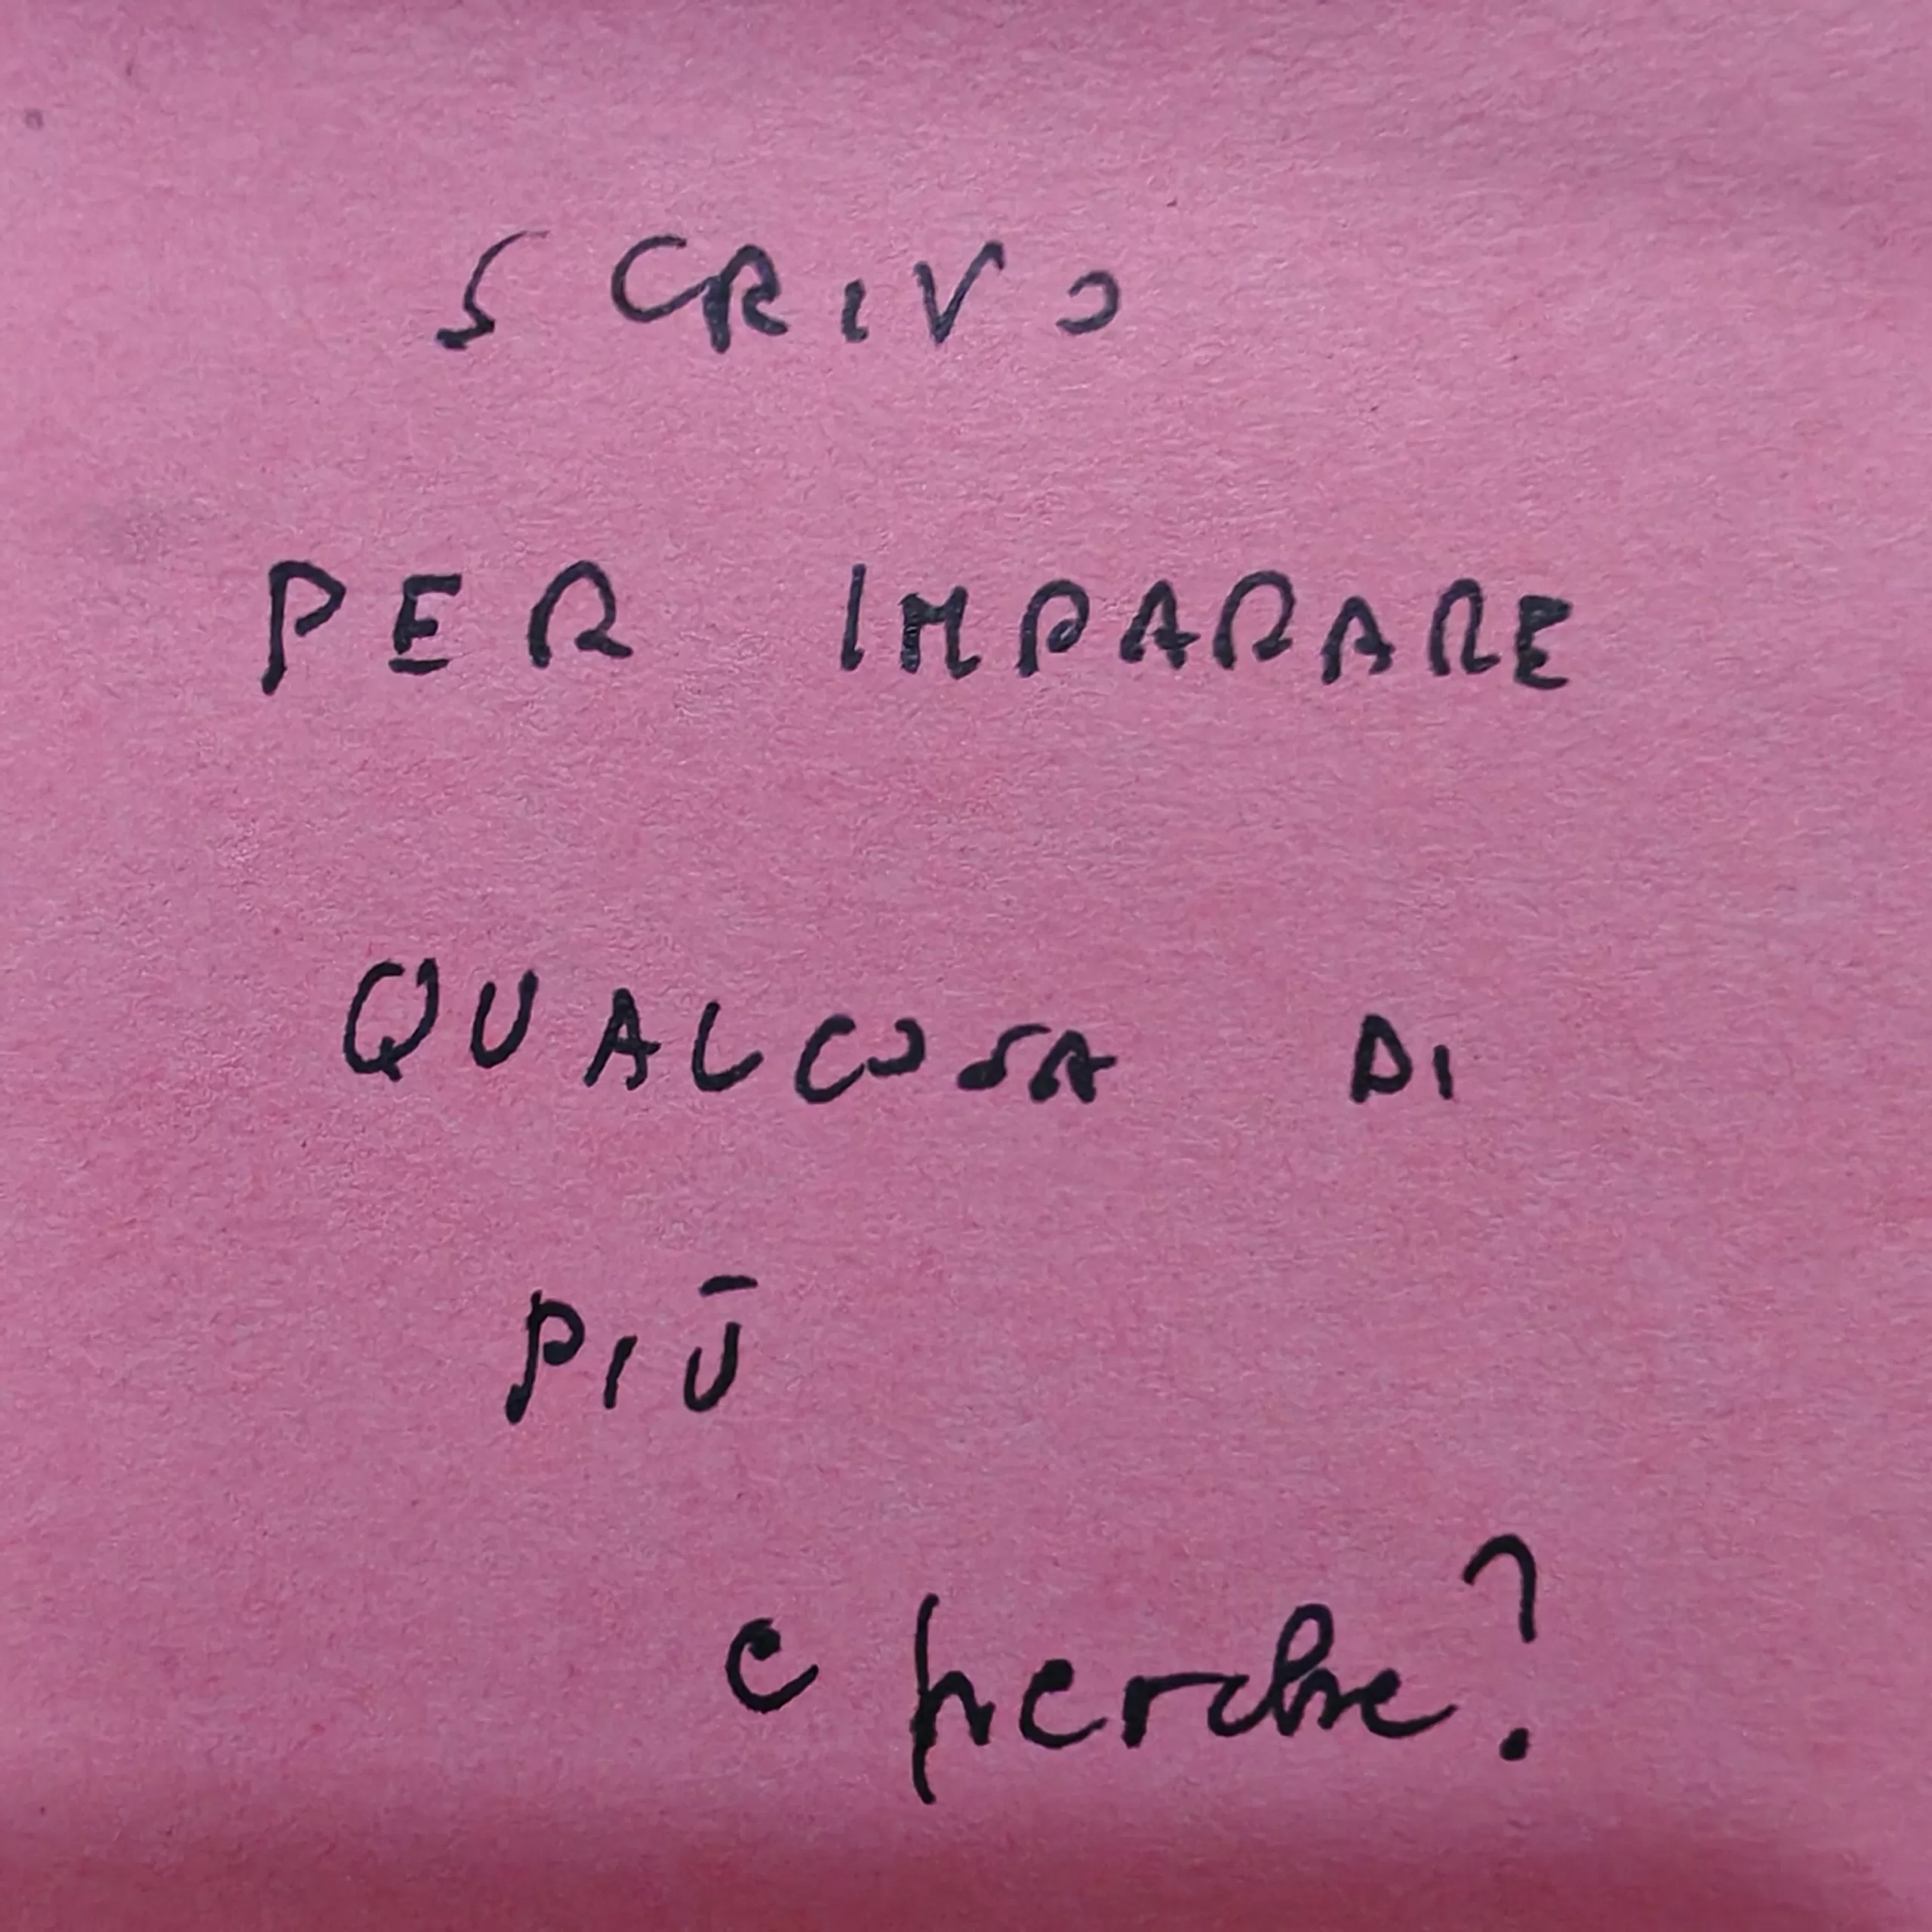 SCRIVO
PER IMPARARE
QUALCOSA DI
PIŪ
e perche?